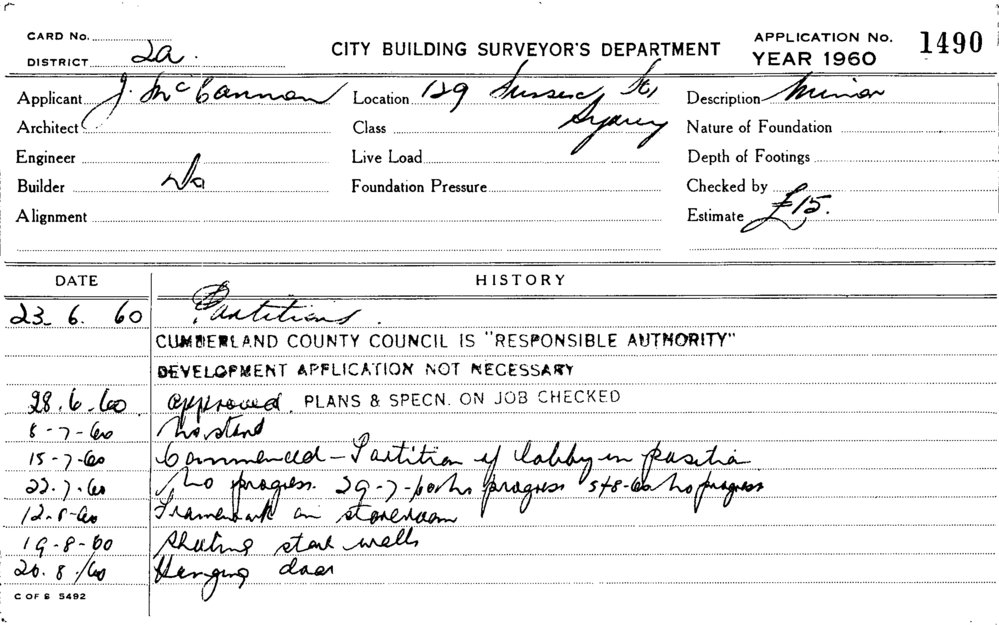 CARD No.
DISTRICT 2a.
CITY BUILDING SURVEYOR'S DEPARTMENT
APPLICATION No. 1490
YEAR 1960
Applicant J. McCannon Location 129 Sussex St, Sydney Description Minor
Architect Class Nature of Foundation
Engineer Live Load Depth of Footings
Builder Do Foundation Pressure Checked by
Alignment Estimate £15.
DATE HISTORY
23. 6. 60 Partitions.
CUMBERLAND COUNTY COUNCIL IS "RESPONSIBLE AUTHORITY"
DEVELOPMENT APPLICATION NOT NECESSARY
28.6.60 approved. PLANS & SPECN. ON JOB CHECKED
8-7-60 No start
15-7-60 Commenced - Partition of lobby in position
22.7.60 No progress. 29-7-60 No progress 5-8-60 No progress
12-8-60 Framework on storeroom
19-8-60 Sheeting store walls
26.8./60 Hanging door
C OF S 5492